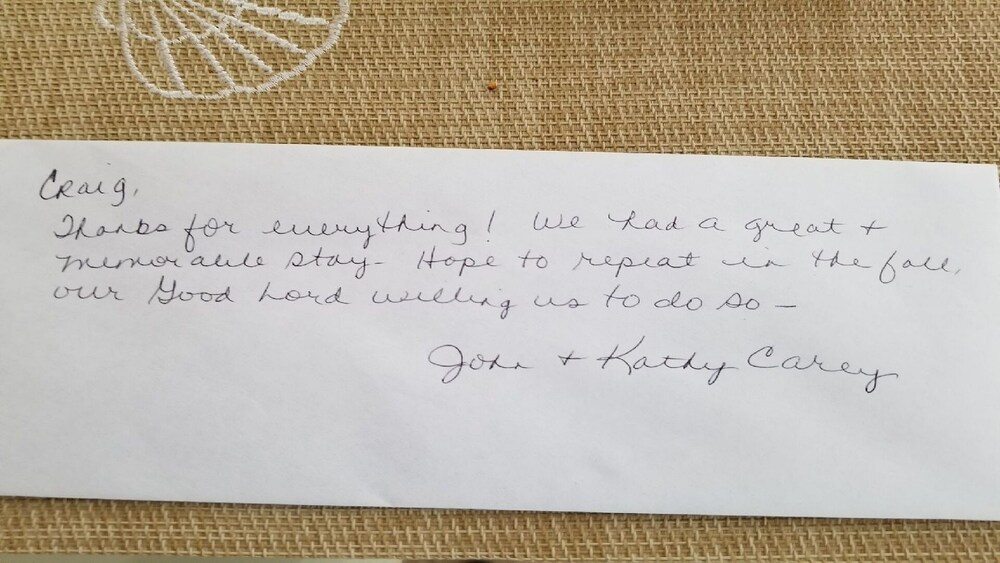 Craig,
Thanks for everything! We had a great +
memorable stay- Hope to repeat in the fall,
our Good Lord willing us to do so -
John + Kathy Carey